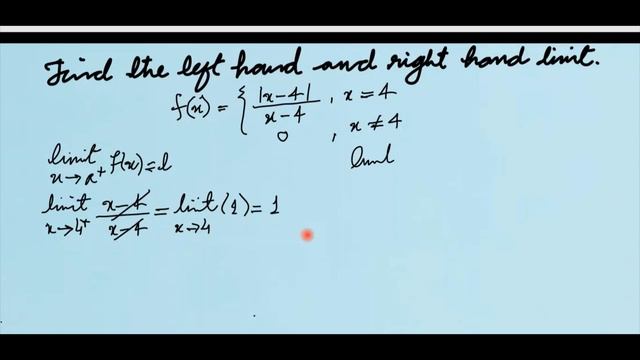 Find the left hand and right hand limit.
f(x) = { |x-4| / x-4 , x = 4
0 , x ≠ 4
limit x→a+ f(x) = l
limit x→4+ x-4 / x-4 = limit x→4 (1) = 1